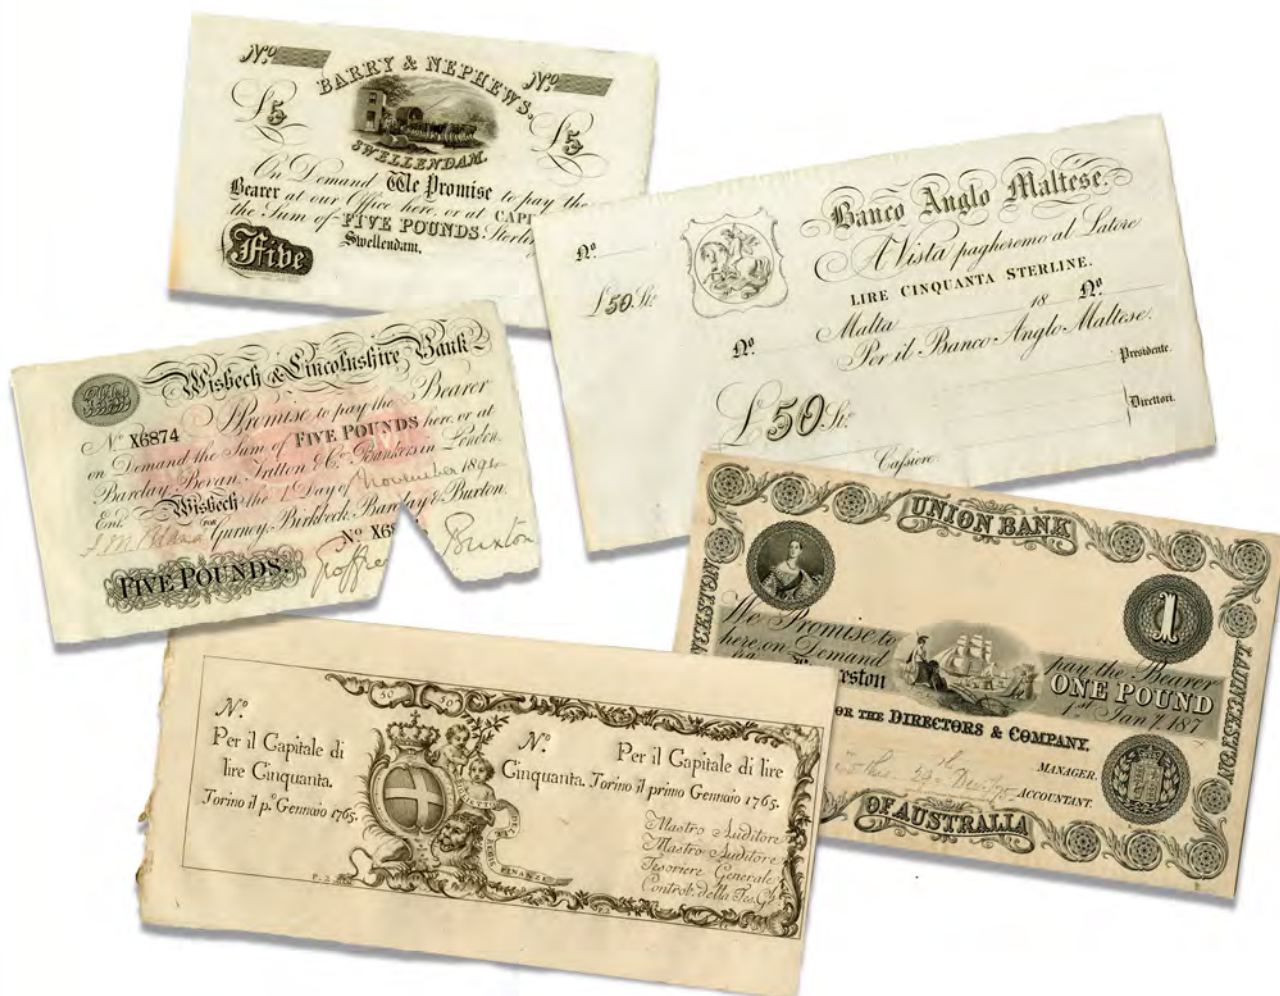 Nº Nº
BARRY & NEPHEWS,
£5 £5
SWELLENDAM.
On Demand We Promise to pay the
Bearer at our Office here, or at CAP
the Sum of FIVE POUNDS Sterlin
Swellendam,
Five
Banco Anglo Maltese.
Nº
A Vista pagheremo al Latore
£50 Stº
LIRE CINQUANTA STERLINE.
Malta 18 Nº
Nº
Per il Banco Anglo Maltese.
Presidente.
£50 Stº
Direttori.
Cassiere.
Wisbech & Lincolnshire Bank
Nº X6874 I Promise to pay the Bearer
on Demand the Sum of FIVE POUNDS here, or at
Barclay, Bevan, Tritton & Cº Bankers in London.
Wisbech the 1 Day of November 189
Entd.
FOR Gurney, Birkbeck, Barclay & Buxton.
Nº X68
FIVE POUNDS.
Buxton
UNION BANK
LAUNCESTON
1
We Promise to pay the Bearer
here, on Demand ONE POUND
eston 1st Jany. 187
FOR THE DIRECTORS & COMPANY,
MANAGER.
ACCOUNTANT.
OF AUSTRALIA
LAUNCESTON
50 50
Nº.
Per il Capitale di
lire Cinquanta.
Torino il pº. Gennaio 1765.
Nº. Per il Capitale di lire
Cinquanta. Torino il primo Gennaio 1765.
DELLE REGIE FINANZE
Mastro Auditore
Mastro Auditore
Tesoriere Generale
Control. della Tes. Gle.